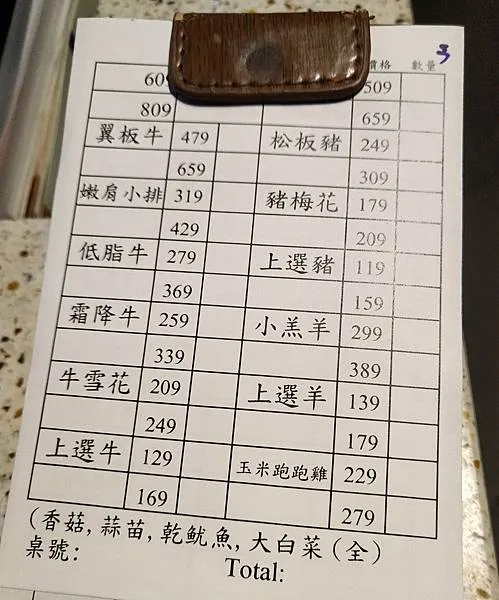 價格 數量 3
609 509
809 659
翼板牛 479 松板豬 249
659 309
嫩肩小排 319 豬梅花 179
429 209
低脂牛 279 上選豬 119
369 159
霜降牛 259 小羔羊 299
339 389
牛雪花 209 上選羊 139
249 179
上選牛 129 玉米跑跑雞 229
169 279
(香菇, 蒜苗, 乾魷魚, 大白菜 (全)
桌號: Total: